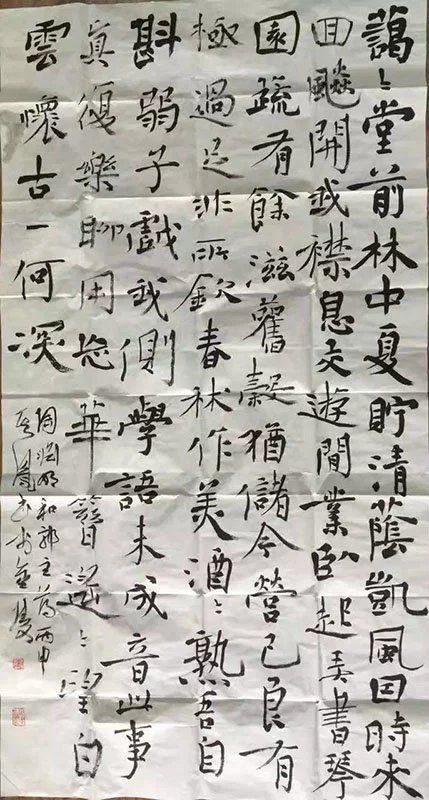 藹〻堂前林中夏貯清蔭凱風因時来
回飈開我襟息交遊閒業臥起弄書琴
園蔬有餘滋舊穀猶儲今營己良有
極過足非所欽春秫作美酒〻熟吾自
斟弱子戲我側學語未成音此事
真復樂聊用忘華簪遥〻望白
雲懷古一何深
陶淵明和郭主簿丙申
書於金陵